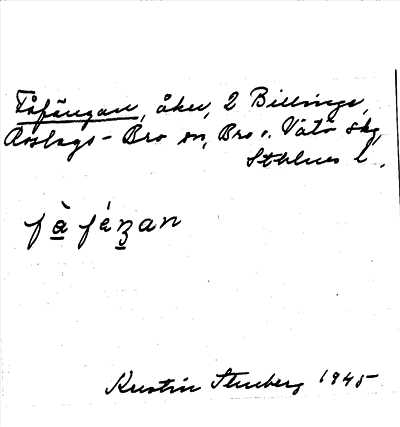 Fåfängan, åker, 2 Billinge,
Roslags-Bro sn, Bro o. Vätö skg,
Sthlms l.
fà féŋan
Kerstin Stenberg 1945